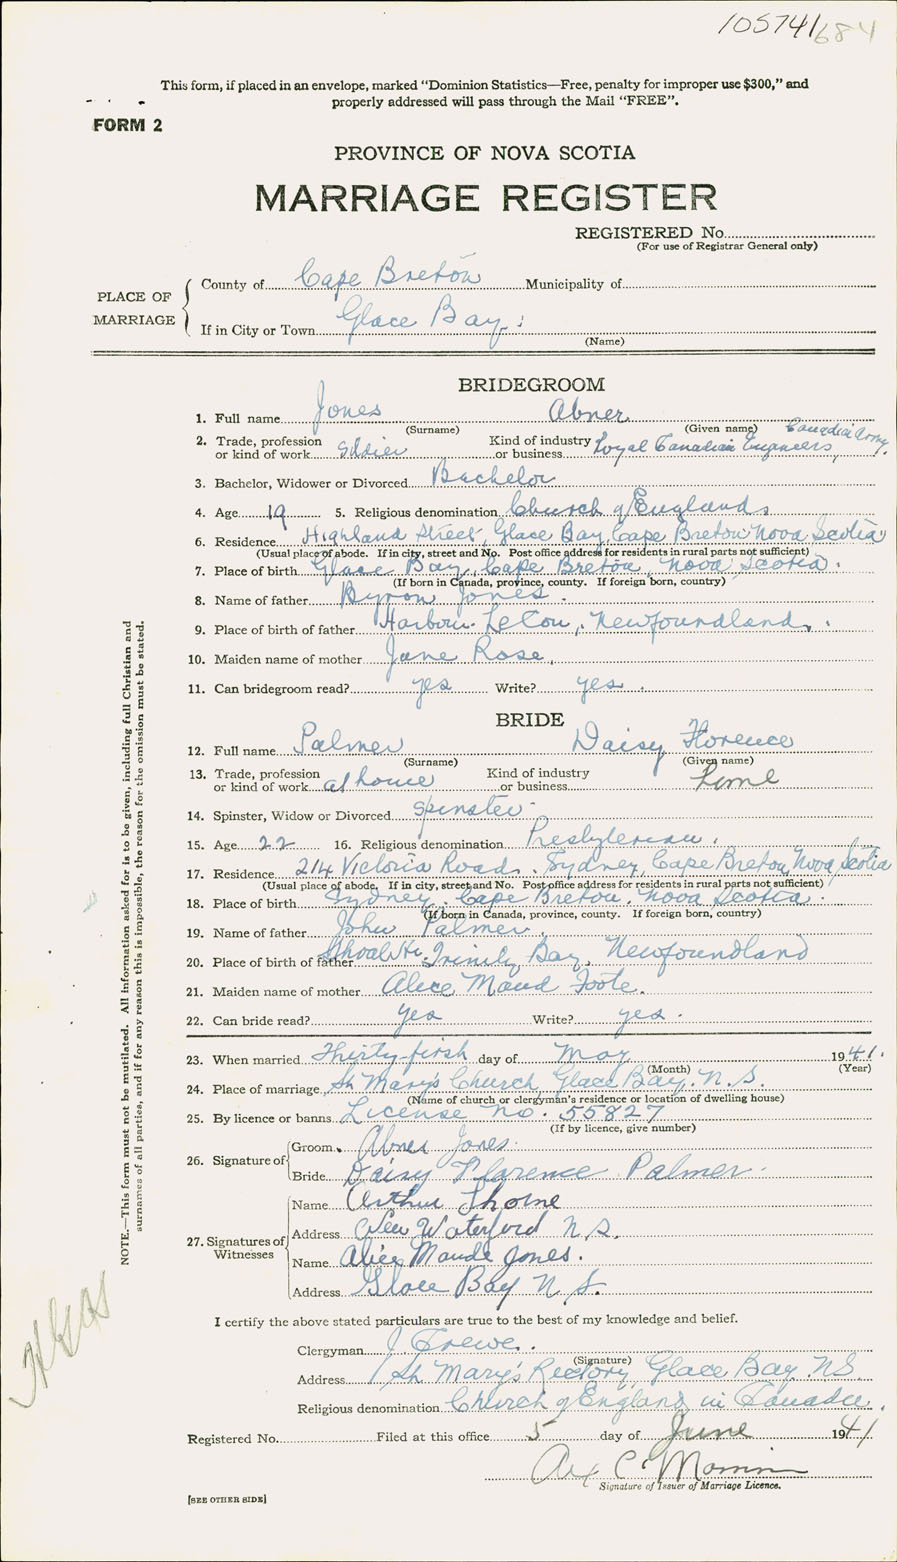 105741 684
This form, if placed in an envelope, marked “Dominion Statistics—Free, penalty for improper use $300,” and
properly addressed will pass through the Mail “FREE”.
FORM 2
PROVINCE OF NOVA SCOTIA
MARRIAGE REGISTER
REGISTERED No.
(For use of Registrar General only)
PLACE OF MARRIAGE
County of Cape Breton Municipality of
If in City or Town Glace Bay
(Name)
BRIDEGROOM
1. Full name Jones Abner
(Surname) (Given name)
2. Trade, profession or kind of work Soldier Kind of industry or business Royal Canadian Engineers, Canadian Army.
3. Bachelor, Widower or Divorced Bachelor
4. Age 19 5. Religious denomination Church of England
6. Residence Highland Street, Glace Bay, Cape Breton Nova Scotia
(Usual place of abode. If in city, street and No. Post office address for residents in rural parts not sufficient)
7. Place of birth Glace Bay, Cape Breton, Nova Scotia.
(If born in Canada, province, county. If foreign born, country)
8. Name of father Byron Jones.
9. Place of birth of father Harbour LeCou, Newfoundland.
10. Maiden name of mother Jane Rose,
11. Can bridegroom read? yes Write? yes.
BRIDE
12. Full name Palmer Daisy Florence
(Surname) (Given name)
13. Trade, profession or kind of work at home Kind of industry or business
14. Spinster, Widow or Divorced Spinster
15. Age 22 16. Religious denomination Presbyterian.
17. Residence 214 Victoria Road, Sydney, Cape Breton, Nova Scotia
(Usual place of abode. If in city, street and No. Post office address for residents in rural parts not sufficient)
18. Place of birth Sydney, Cape Breton, Nova Scotia.
(If born in Canada, province, county. If foreign born, country)
19. Name of father John Palmer.
20. Place of birth of father Shoal Hr. Trinity Bay, Newfoundland
21. Maiden name of mother Alice Maud Foote.
22. Can bride read? yes Write? yes.
23. When married Thirty-first day of May 1941.
(Month) (Year)
24. Place of marriage St Mary's Church, Glace Bay. N.S.
(Name of church or clergyman's residence or location of dwelling house)
25. By licence or banns License No. 55827
(If by licence, give number)
26. Signature of
Groom Abner Jones.
Bride Daisy Florence Palmer.
27. Signatures of Witnesses
Name Arthur Thorne
Address New Waterford N.S.
Name Alice Maude Jones.
Address Glace Bay N.S.
I certify the above stated particulars are true to the best of my knowledge and belief.
Clergyman J. Frewe.
(Signature)
Address St Mary's Rectory Glace Bay NS
Religious denomination Church of England in Canada.
Registered No. Filed at this office 5 day of June 1941
C
Signature of Issuer of Marriage Licence.
[SEE OTHER SIDE]
NOTE.—This form must not be mutilated. All information asked for is to be given, including full Christian and
surnames of all parties, and if for any reason this is impossible, the reason for the omission must be stated.